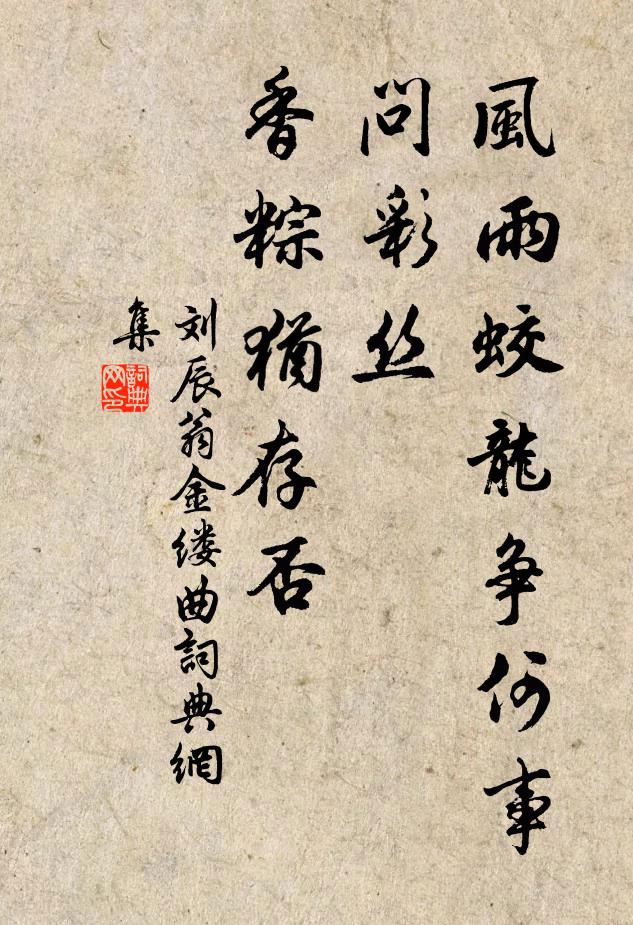 風雨蛟龍争何事
問彩丝
香粽猶存否
刘辰翁金缕曲詞典網
集
詞典
网印